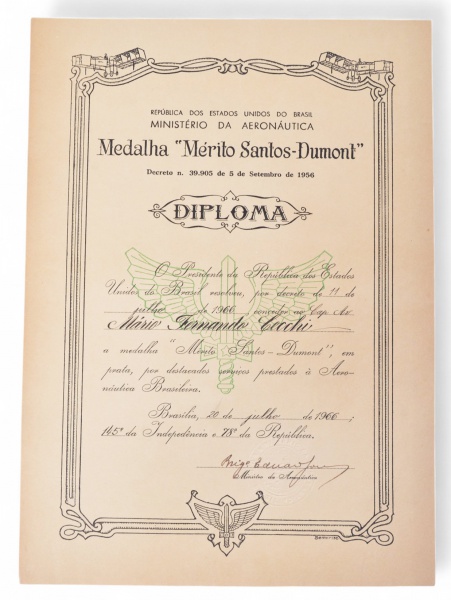 REPÚBLICA DOS ESTADOS UNIDOS DO BRASIL
MINISTÉRIO DA AERONÁUTICA
Medalha "Mérito Santos-Dumont"
Decreto n. 39.905 de 5 de Setembro de 1956
DIPLOMA
O Presidente da República dos Estados
Unidos do Brasil resolveu, por decreto de 11 de
julho de 1966 conceder ao Cap. Av.
Mário Fernando Cecchi
a medalha "Mérito Santos-Dumont", em
prata, por destacados serviços prestados à Aero-
náutica Brasileira.
Brasília, 20 de julho de 1966;
145º da Independência e 78º da República.
Brigº Eduardo
Ministro da Aeronáutica